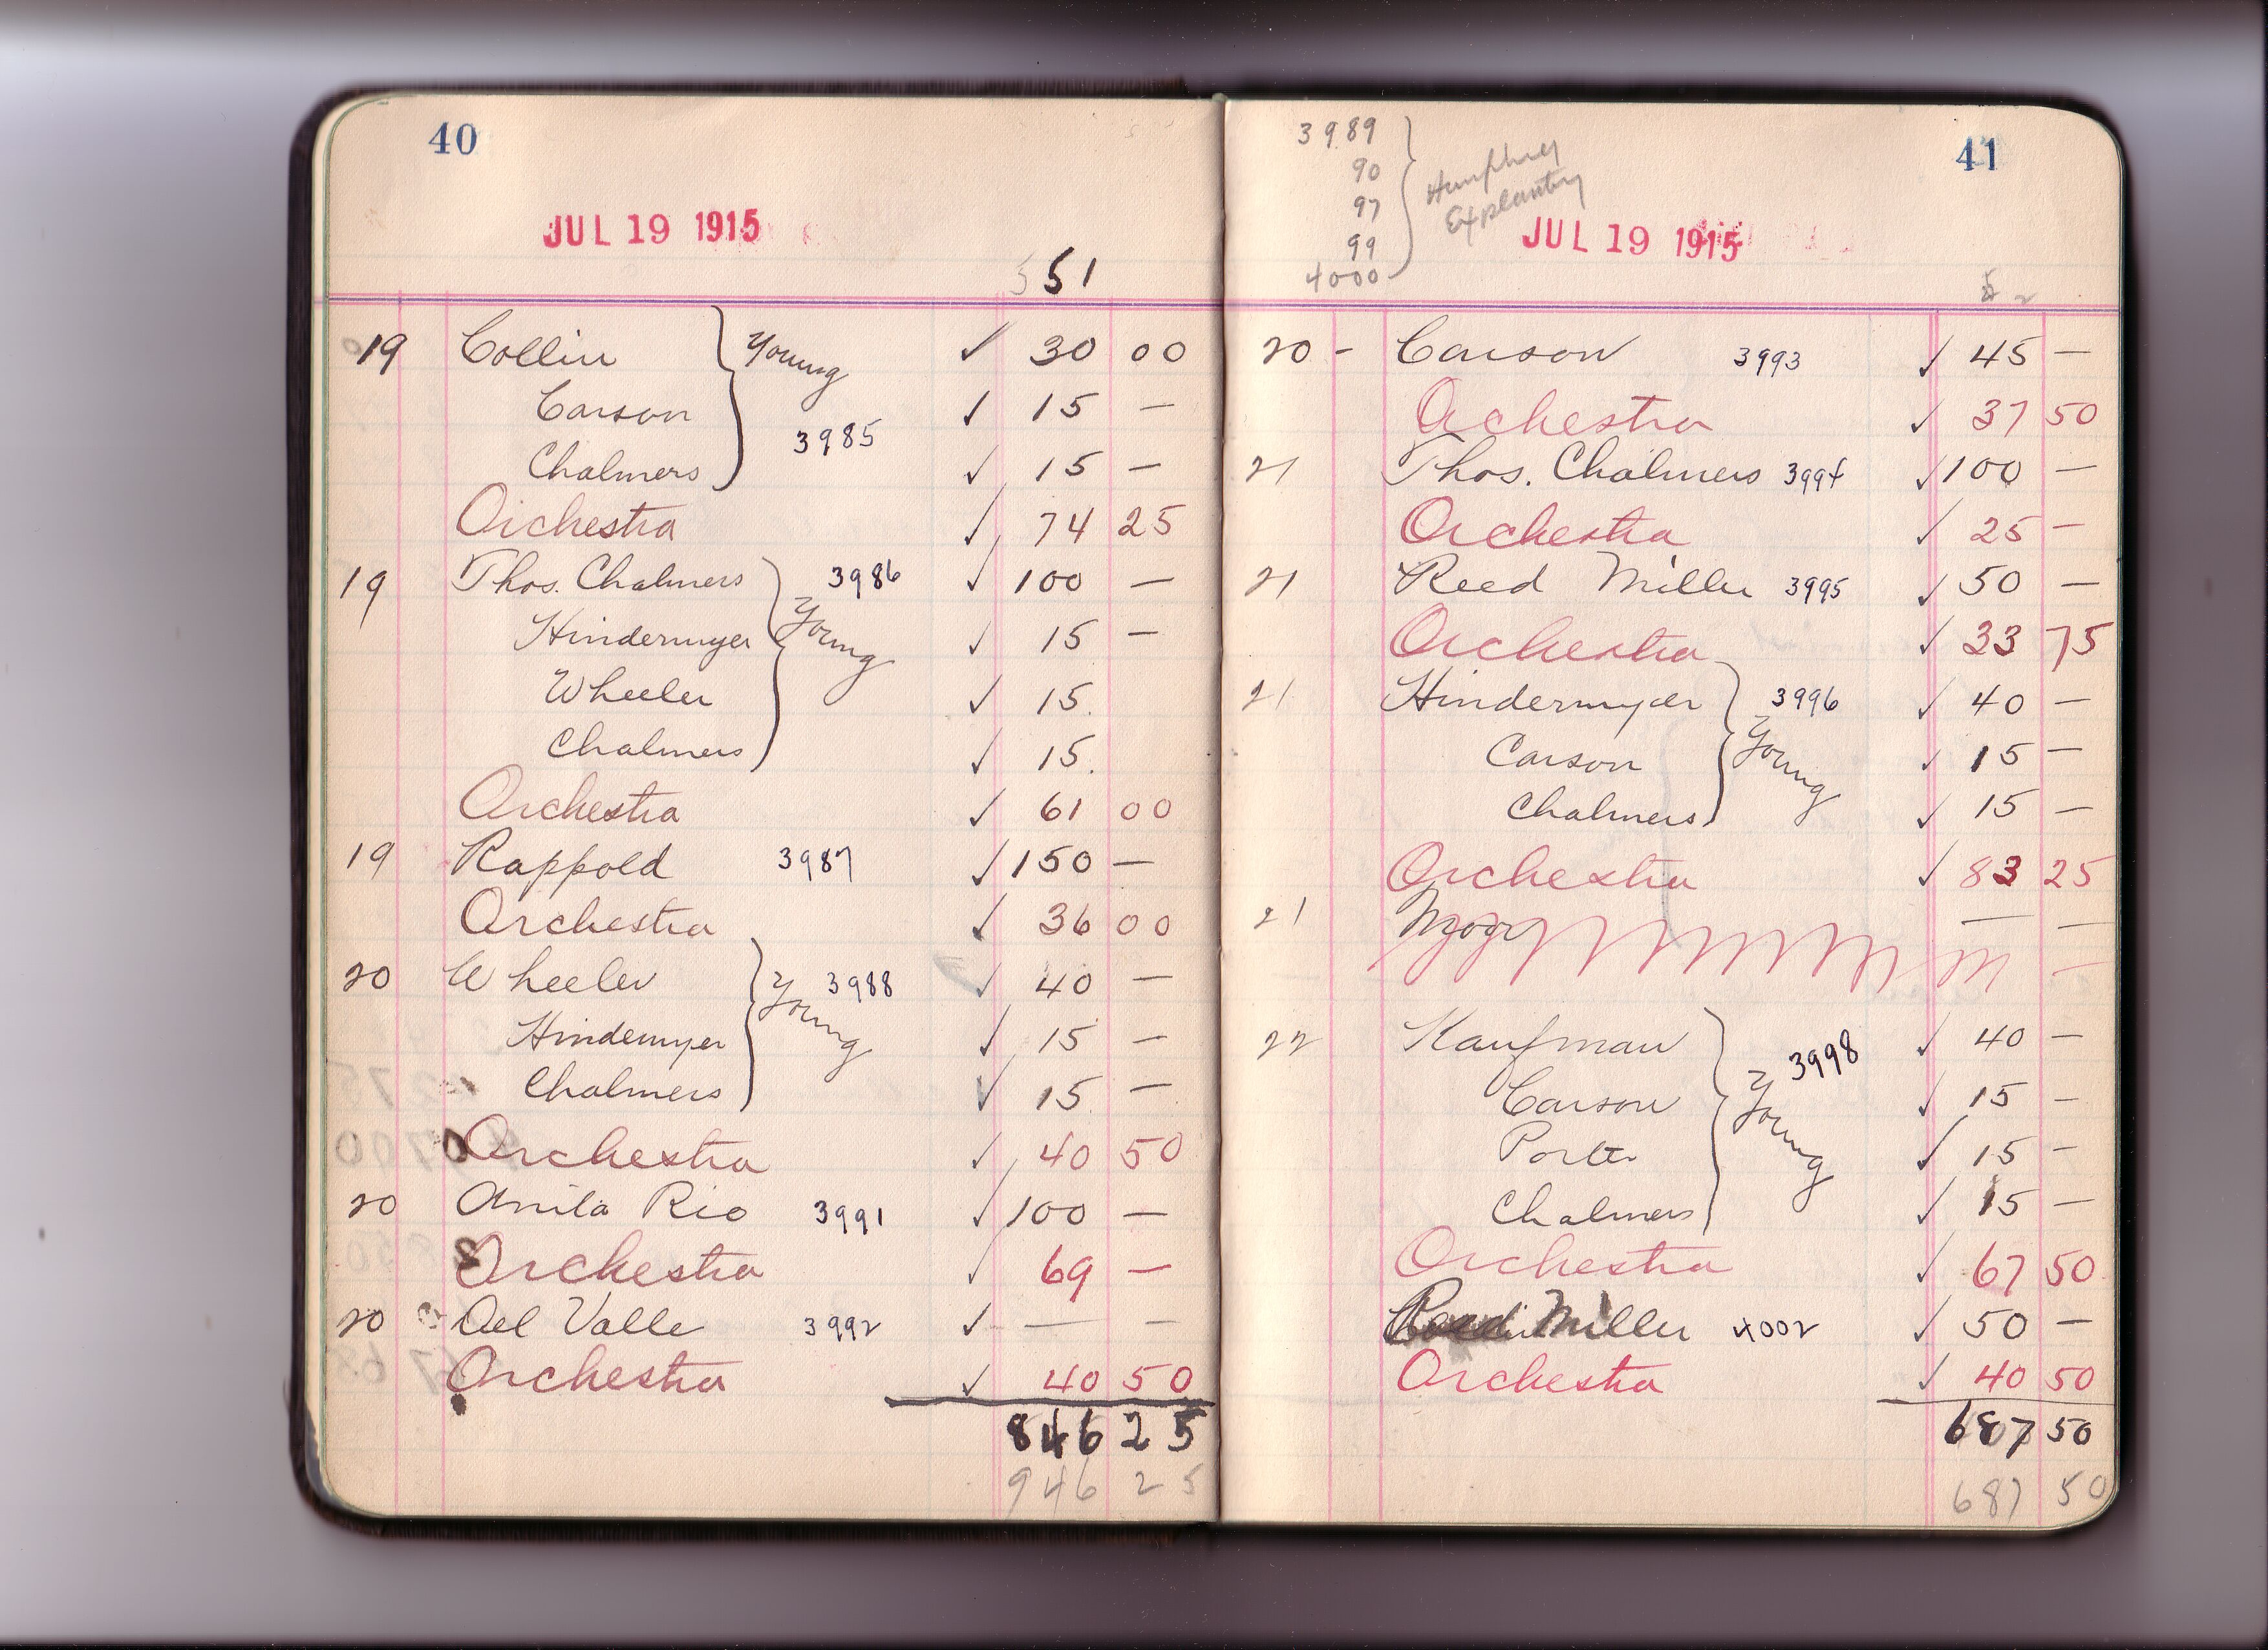 40
JUL 19 1915
551
19 Collin } Young ✓ 30 00
Carson ✓ 15 —
Chalmers 3985 ✓ 15 —
Orchestra ✓ 74 25
19 Thos. Chalmers } 3986 ✓ 100 —
Hindermyer Young ✓ 15 —
Wheeler ✓ 15.
Chalmers ✓ 15.
Orchestra ✓ 61 00
19 Rappold 3987 ✓ 150 —
Orchestra ✓ 36 00
20 Wheeler } Young 3988 ✓ 40 —
Hindemyer ✓ 15 —
Chalmers ✓ 15 —
Orchestra ✓ 40 50
20 Anita Rio 3991 ✓ 100 —
Orchestra ✓ 69 —
20 Del Valle 3992 ✓ — —
Orchestra ✓ 40 50
846 25
946 25
41
3989
90
97
99
4000
} Humphrey
JUL 19 1915
52
20 - Carson 3993 ✓ 45 —
Ochestra ✓ 37 50
21 Thos. Chalmers 3994 ✓ 100 —
Orchestra ✓ 25 —
21 Reed Miller 3995 ✓ 50 —
Orchestra ✓ 33 75
21 Hindermyer } 3996 ✓ 40 —
Carson Young ✓ 15 —
Chalmers ✓ 15 —
Orchestra ✓ 83 25
21 — —
22 Kaufman } 3998 ✓ 40 —
Carson Young ✓ 15 —
Porter ✓ 15 —
Chalmers ✓ 15 —
Orchestra ✓ 67 50
Reed Miller 4002 ✓ 50 —
Orchestra ✓ 40 50
687 50
687 50